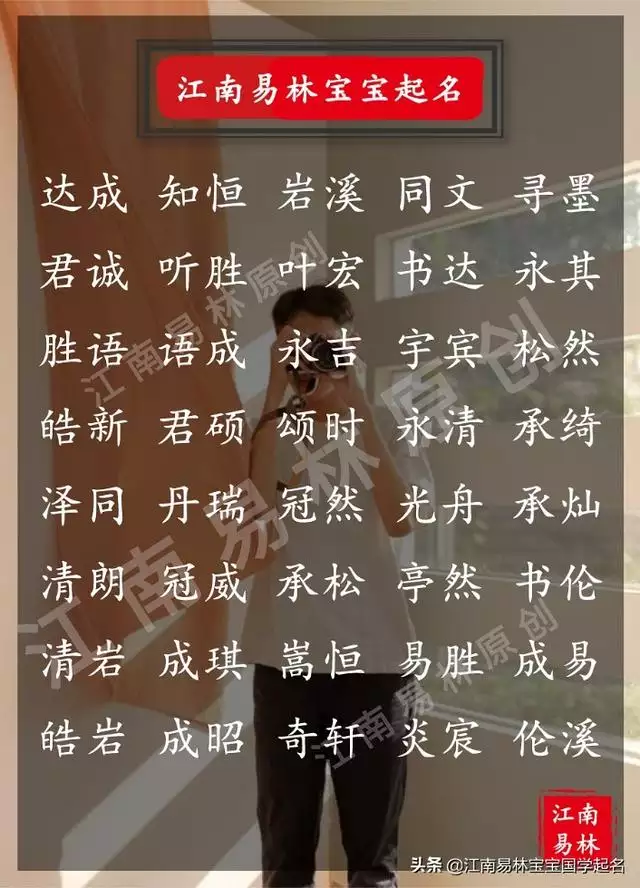 江南易林宝宝起名
达成 知恒 岩溪 同文 寻墨
君诚 听胜 叶宏 书达 永其
胜语 语成 永吉 宇宾 松然
皓新 君硕 颂时 永清 承绮
泽同 丹瑞 冠然 光舟 承灿
清朗 冠威 承松 亭然 书伦
清岩 成琪 嵩恒 易胜 成易
皓岩 成昭 奇轩 炎宸 伦溪
江南易林原创
江南易林原创
江南易林原创
江南
易林
头条 @江南易林宝宝国学起名